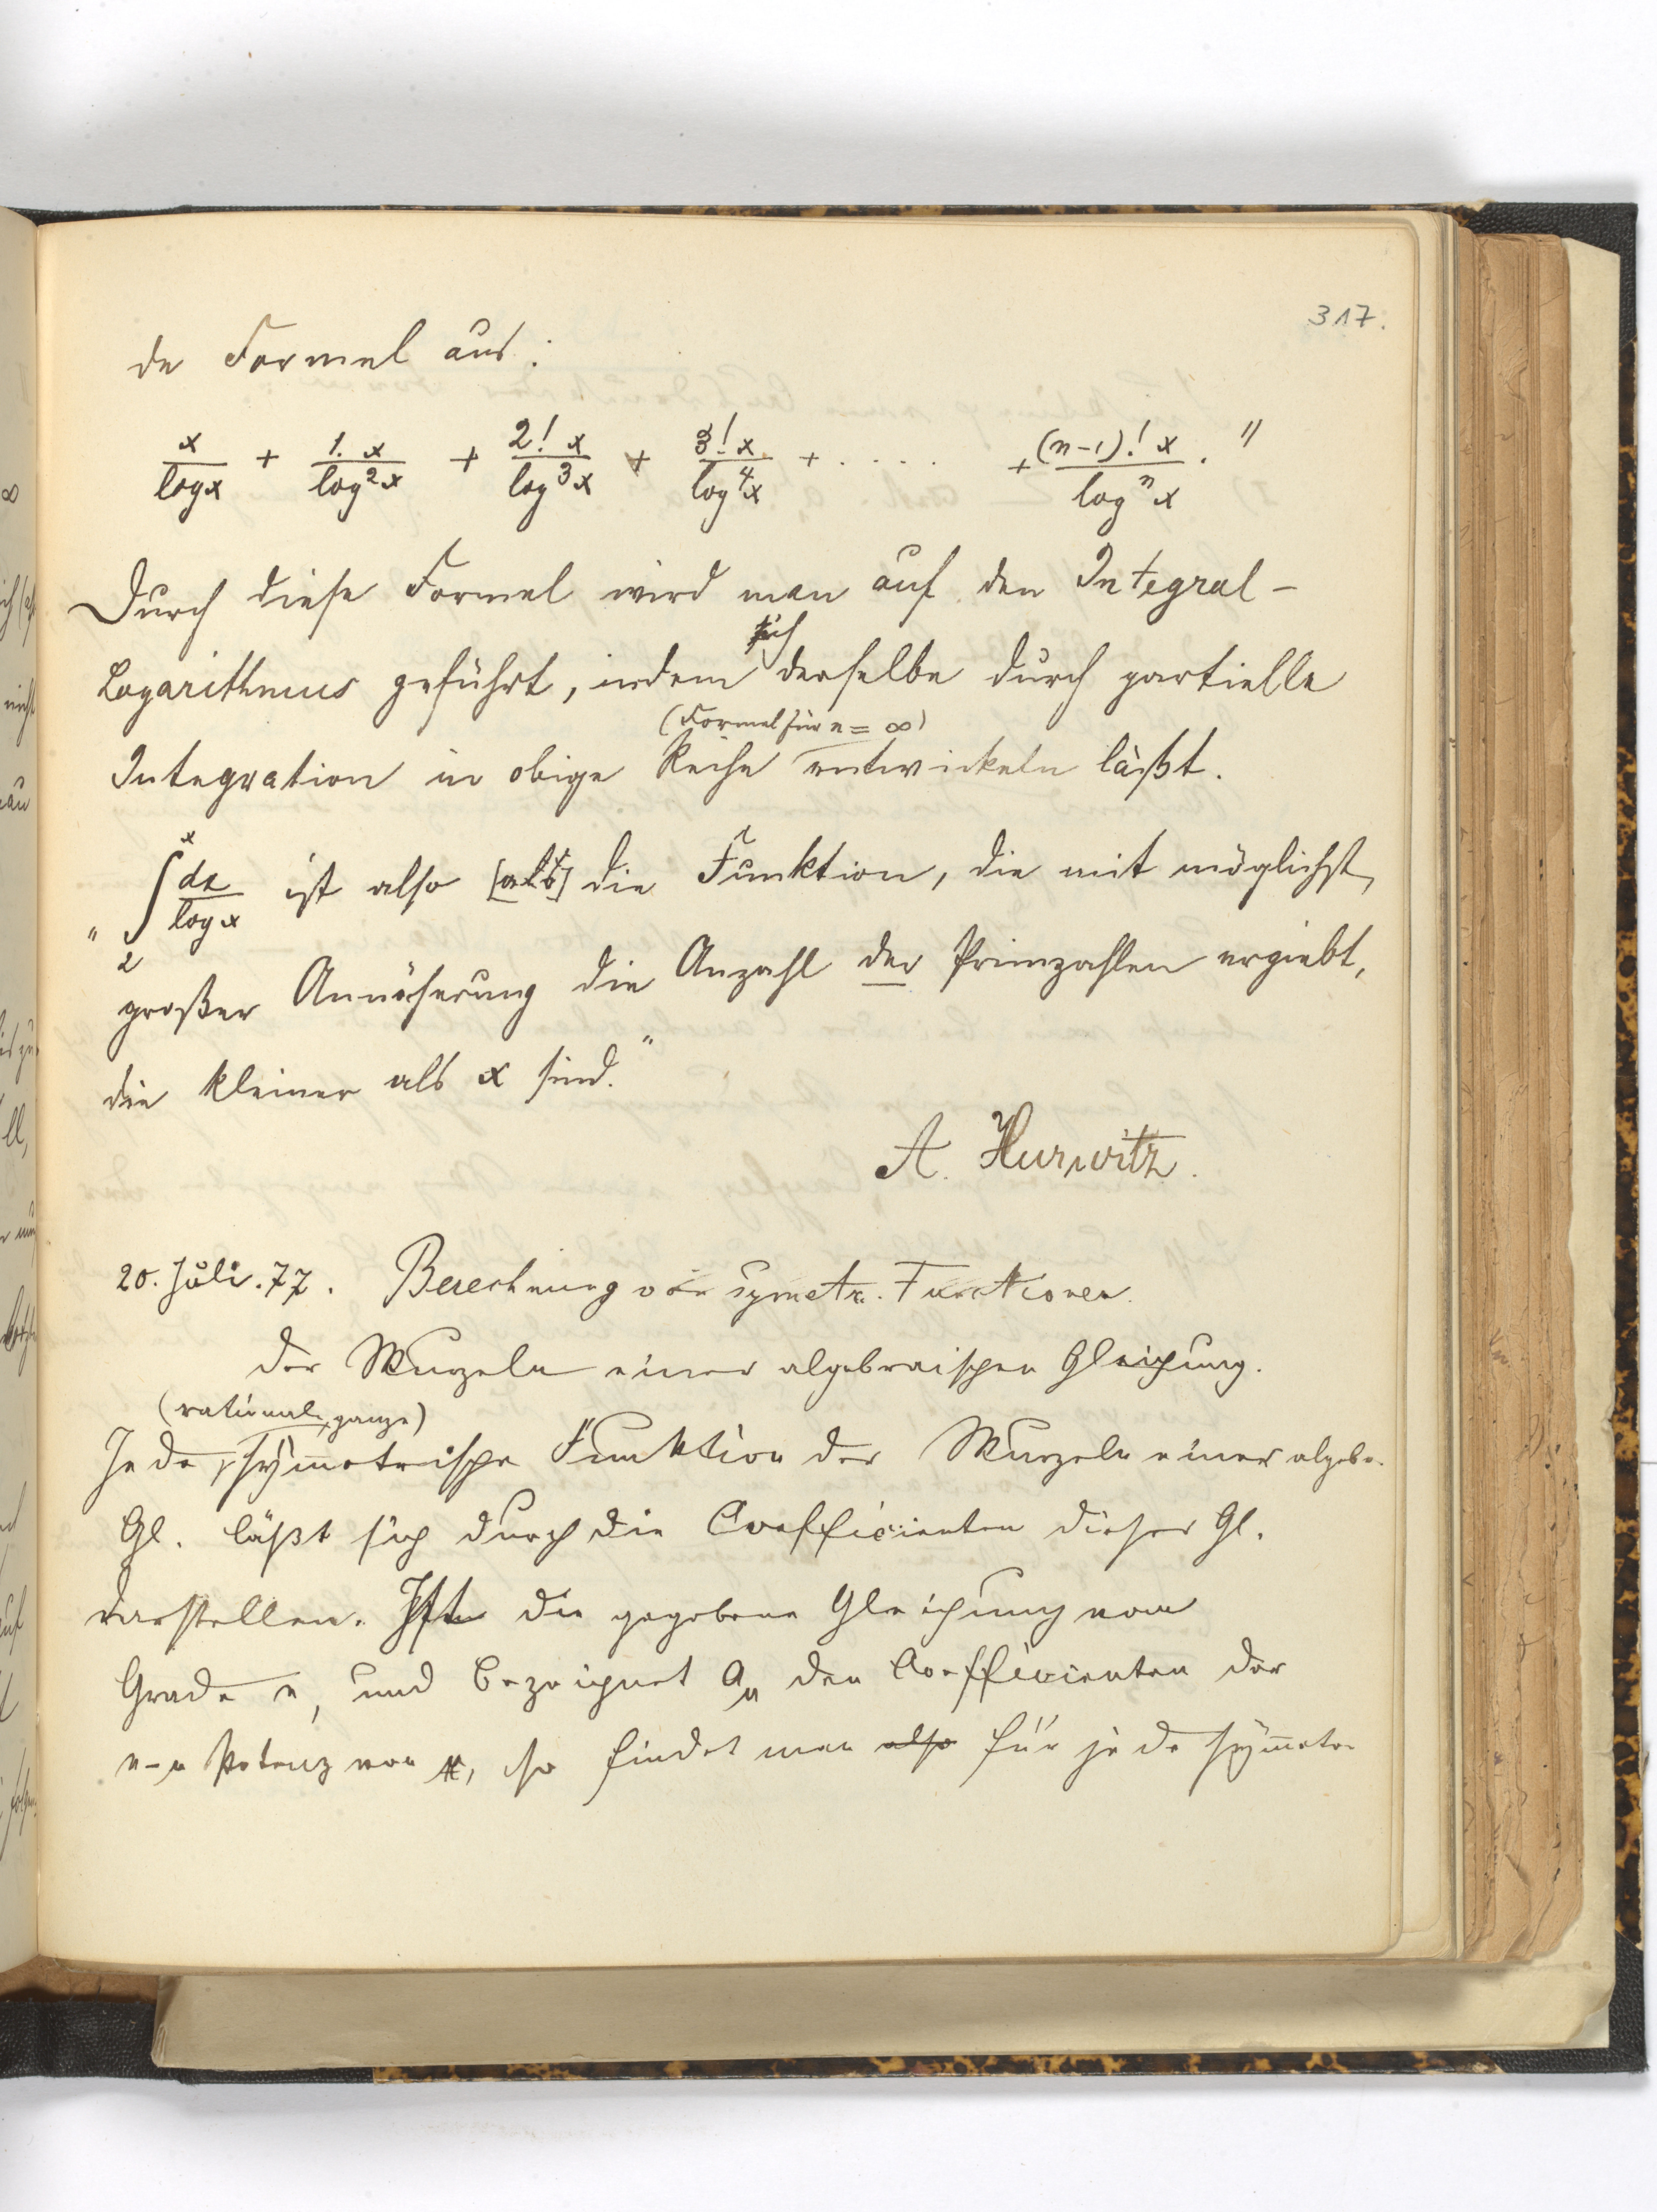 317.
de Formel aus:
x/log x + 1. x/log²x + 2! x/log³x + 3! x/log⁴x + . . . . . + (n-1)! x/logⁿx . "
Durch diese Formel wird man auf den Integral-
sich
Logarithmus geführt, indem derselbe durch partielle
(Formel für n = ∞)
Integration in obige Reihe entwickeln läßt.
" ∫₂ˣ dx/log x ist also [als] die Funktion, die mit möglichst
großer Annäherung die Anzahl der Primzahlen ergiebt,
die kleiner als x sind."
A. Hurwitz.
20. Juli. 77. Berechnung von symetr. Functionen
der Wurzeln einer algebraischen Gleichung.
(rationale, ganze)
Jede symmetrische Funktion der Wurzeln einer algebr.
Gl. läßt sich durch die Coefficienten dieser Gl.
darstellen. Ist die gegebene Gleichung vom
Grade n, und bezeichnet aₙ den Coefficienten der
n-n Potenz von x, so findet man also für jede symmetr